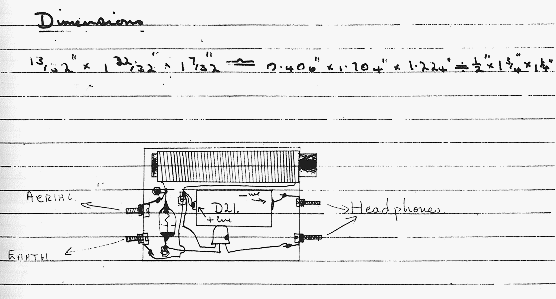 Dimensions
13/32" × 1 22/32" × 1 7/32" ≏ 0.406" × 1.704" × 1.224" ≑ ½" × 1¾" × 1¼"
AERIAL
-ve
D21.
+ive
Headphones
EARTH